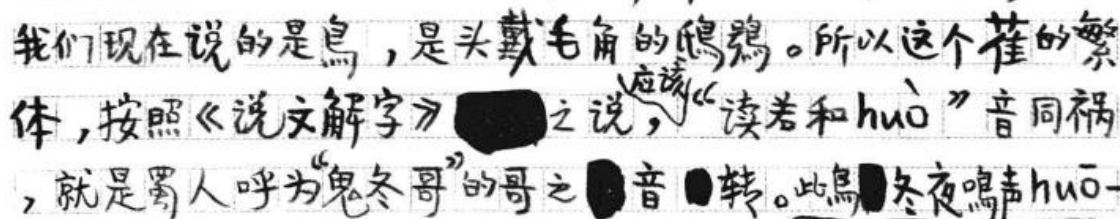 我们现在说的是鳥，是头戴毛角的鴟鴞。所以这个萑的繁
体，按照《说文解字》之说，应该“读若和huò”音同祸
，就是蜀人呼为“鬼冬哥”的哥之音转。此鳥冬夜鳴声huō-